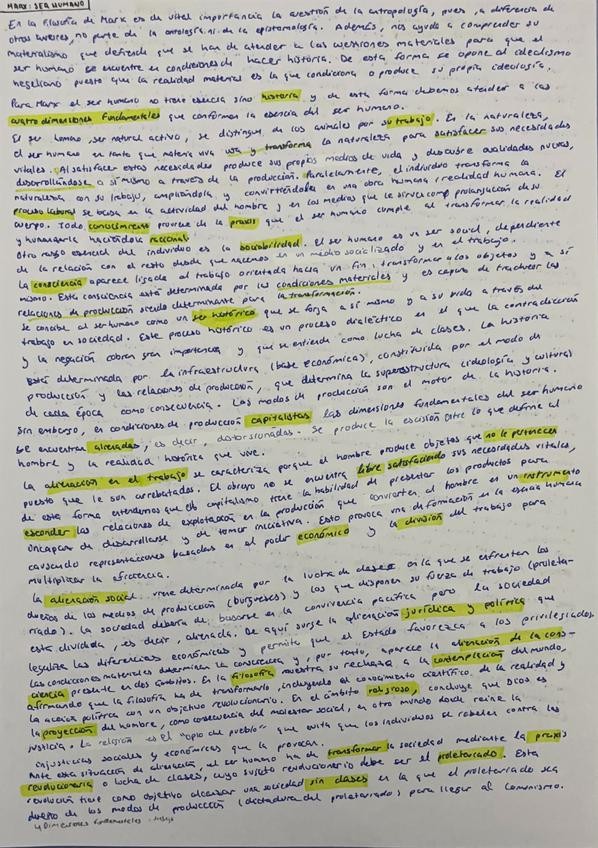 MARX: SER HUMANO
En la filosofía de Marx es de vital importancia la cuestión de la antropología, pues, a diferencia de
otros autores, no parte de la ontología ni de la epistemología. Además, nos ayuda a comprender su
materialismo que defiende que se han de atender a las cuestiones materiales para que el
ser humano se encuentre en condiciones de hacer historia. De esta forma se opone al idealismo
hegeliano puesto que la realidad material es la que condiciona o produce su propia ideología.
Para Marx el ser humano no tiene esencia sino historia y de esta forma debemos atender a las
cuatro dimensiones fundamentales que conforman la esencia del ser humano.
El ser humano, ser natural activo, se distingue de los animales por su trabajo. En la naturaleza,
el ser humano en tanto que materia viva usa y transforma la naturaleza para satisfacer sus necesidades
vitales. Al satisfacer estas necesidades produce sus propios medios de vida y descubre cualidades nuevas,
desarrollándose a sí mismo a través de la producción. Paralelamente, el individuo transforma la
naturaleza con su trabajo, ampliándola y convirtiéndola en una obra humana (realidad humana). El
proceso laboral se basa en la actividad del hombre y en los medios que le sirven como prolongación de su
cuerpo. Todo conocimiento procede de la praxis que el ser humano cumple al transformar la realidad
y humanizarla haciéndola racional.
Otro rasgo esencial del individuo es la sociabilidad. El ser humano es un ser social, dependiente
de la relación con el resto desde que nacemos en un medio socializado y en el trabajo.
La consciencia aparece ligada al trabajo orientada hacia un fin: transformar los objetos y a sí
mismo. Esta consciencia está determinada por las condiciones materiales y es capaz de traducir las
relaciones de producción siendo determinante para la transformación.
Se concibe al ser humano como un ser histórico que se forja a sí mismo y a su vida a través del
trabajo en sociedad. Este proceso histórico es un proceso dialéctico en el que la contradicción
y la negación cobran gran importancia y que se entiende como lucha de clases. La historia
está determinada por la infraestructura (base económica), constituida por el modo de
producción y las relaciones de producción, que determina la superestructura (ideología y cultura)
de cada época como consecuencia. Los modos de producción son el motor de la historia.
Sin embargo, en condiciones de producción capitalistas las dimensiones fundamentales del ser humano
se encuentran alienadas, es decir, distorsionadas. Se produce la escisión entre lo que define al
hombre y la realidad histórica que vive.
La alienación en el trabajo se caracteriza porque el hombre produce objetos que no le pertenecen
puesto que le son arrebatados. El obrero no se encuentra libre satisfaciendo sus necesidades vitales,
de esta forma entendemos que el capitalismo tiene la habilidad de presentar los productos para
esconder las relaciones de explotación en la producción que convierten al hombre en un instrumento
incapaz de desarrollarse y de tomar iniciativa. Esto provoca una deformación en la esencia humana
causando representaciones basadas en el poder económico y la división del trabajo para
multiplicar la eficiencia.
La alienación social viene determinada por la lucha de clases en la que se enfrentan los
dueños de los medios de producción (burgueses) y los que disponen su fuerza de trabajo (proleta-
riado). La sociedad debería de basarse en la convivencia pacífica pero la sociedad
está dividida, es decir, alienada. De aquí surge la alienación jurídica y política que
legaliza las diferencias económicas y permite que el Estado favorezca a los privilegiados.
Las condiciones materiales determinan la conciencia y, por tanto, aparece la alienación de la cons-
ciencia presente en dos ámbitos. En la filosofía muestra su rechazo a la contemplación del mundo,
afirmando que la filosofía ha de transformarlo, incluyendo el conocimiento científico de la realidad y
la acción política con un objetivo revolucionario. En el ámbito religioso, concluye que Dios es
la proyección del hombre, como consecuencia del malestar social, en otro mundo donde reine la
justicia. La religión es el "opio del pueblo" que evita que los individuos se rebelen contra las
injusticias sociales y económicas que la provocan.
Ante esta situación de alienación, el ser humano ha de transformar la sociedad mediante la praxis
revolucionaria o lucha de clases, cuyo sujeto revolucionario debe ser el proletariado. Esta
revolución tiene como objetivo alcanzar una sociedad sin clases en la que el proletariado sea
dueño de los modos de producción (dictadura del proletariado) para llegar al comunismo.
4 Dimensiones fundamentales: trabajo